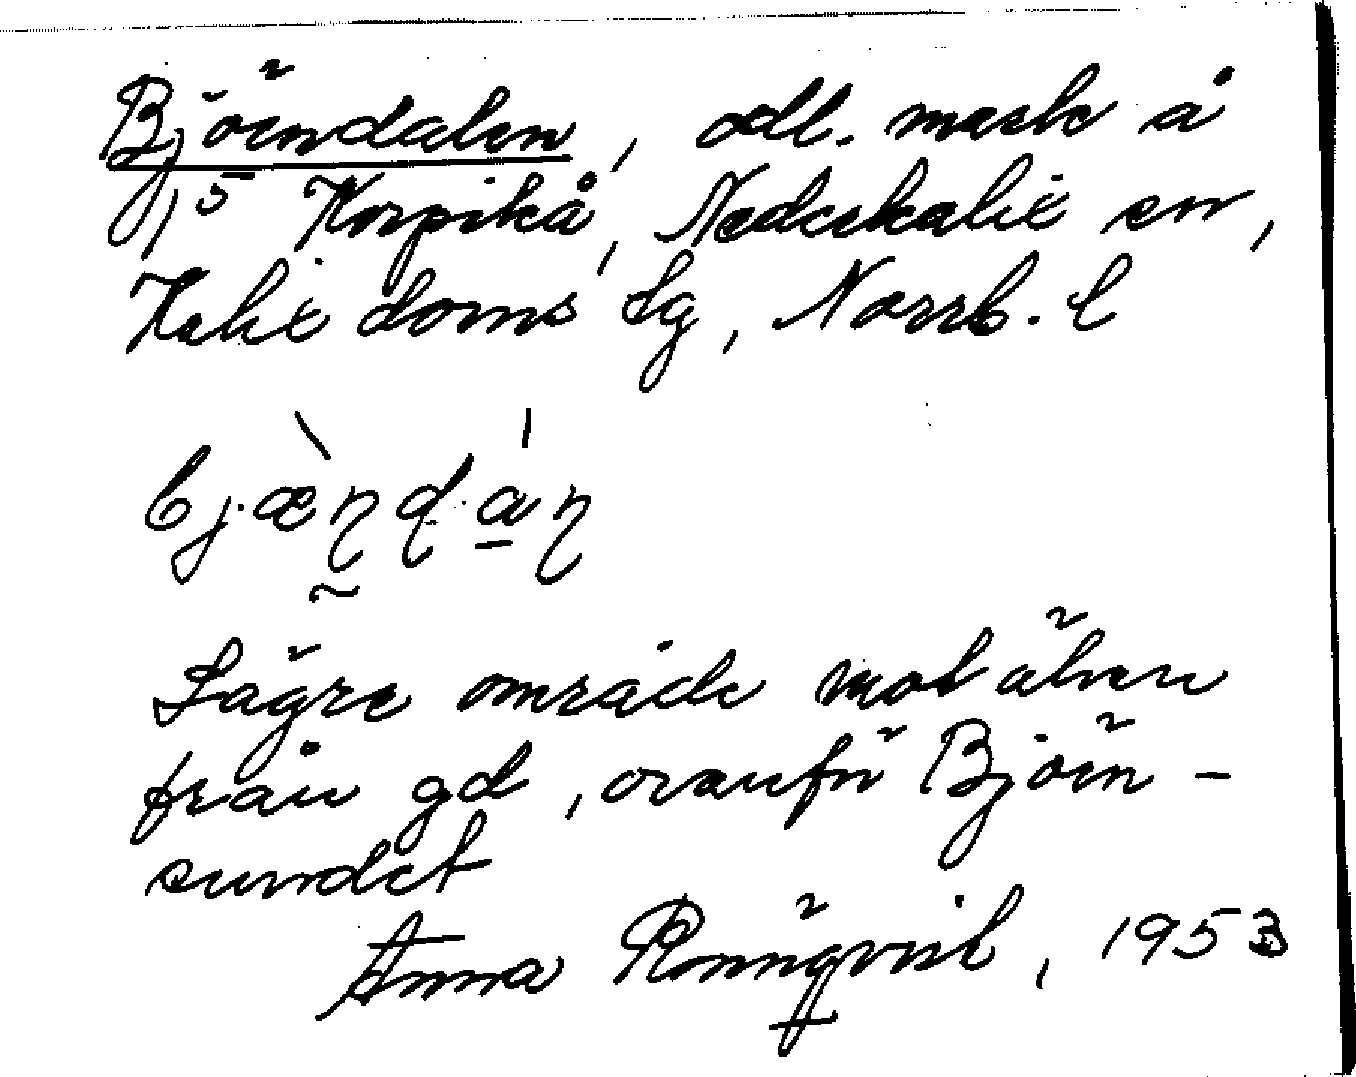 Björndalen, odl. mark å
1/5 Korpikå, Nederkalix sn,
Kalix doms lg, Norrb. l
bj.æ̀ɳɖ.a̲̍ɳ
Lägre område mot älven
från gd, ovanför Björn-
sundet
Anna Rönnqvist, 1953